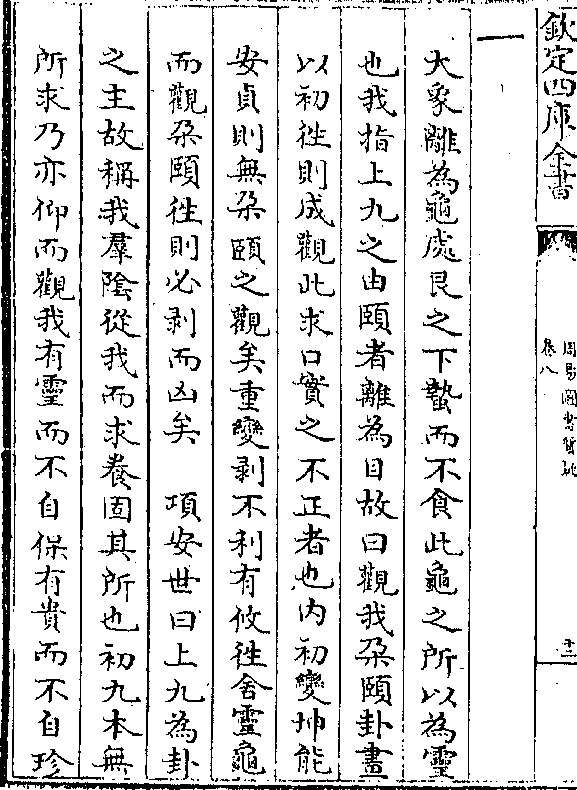 欽定四庫全書
周易圖書質疑
卷八
十二
大象離為龜處艮之下蟄而不食此龜之所以為靈
也我指上九之由頤者離為目故曰觀我朶頤卦畫
以初徃則成觀此求口實之不正者也内初變坤能
安貞則無朶頤之觀矣重變剥不利有攸徃舍靈龜
而觀朶頤徃則必剥而凶矣　項安世曰上九為卦
之主故稱我羣陰從我而求養固其所也初九本無
所求乃亦仰而觀我有靈而不自保有貴而不自珍